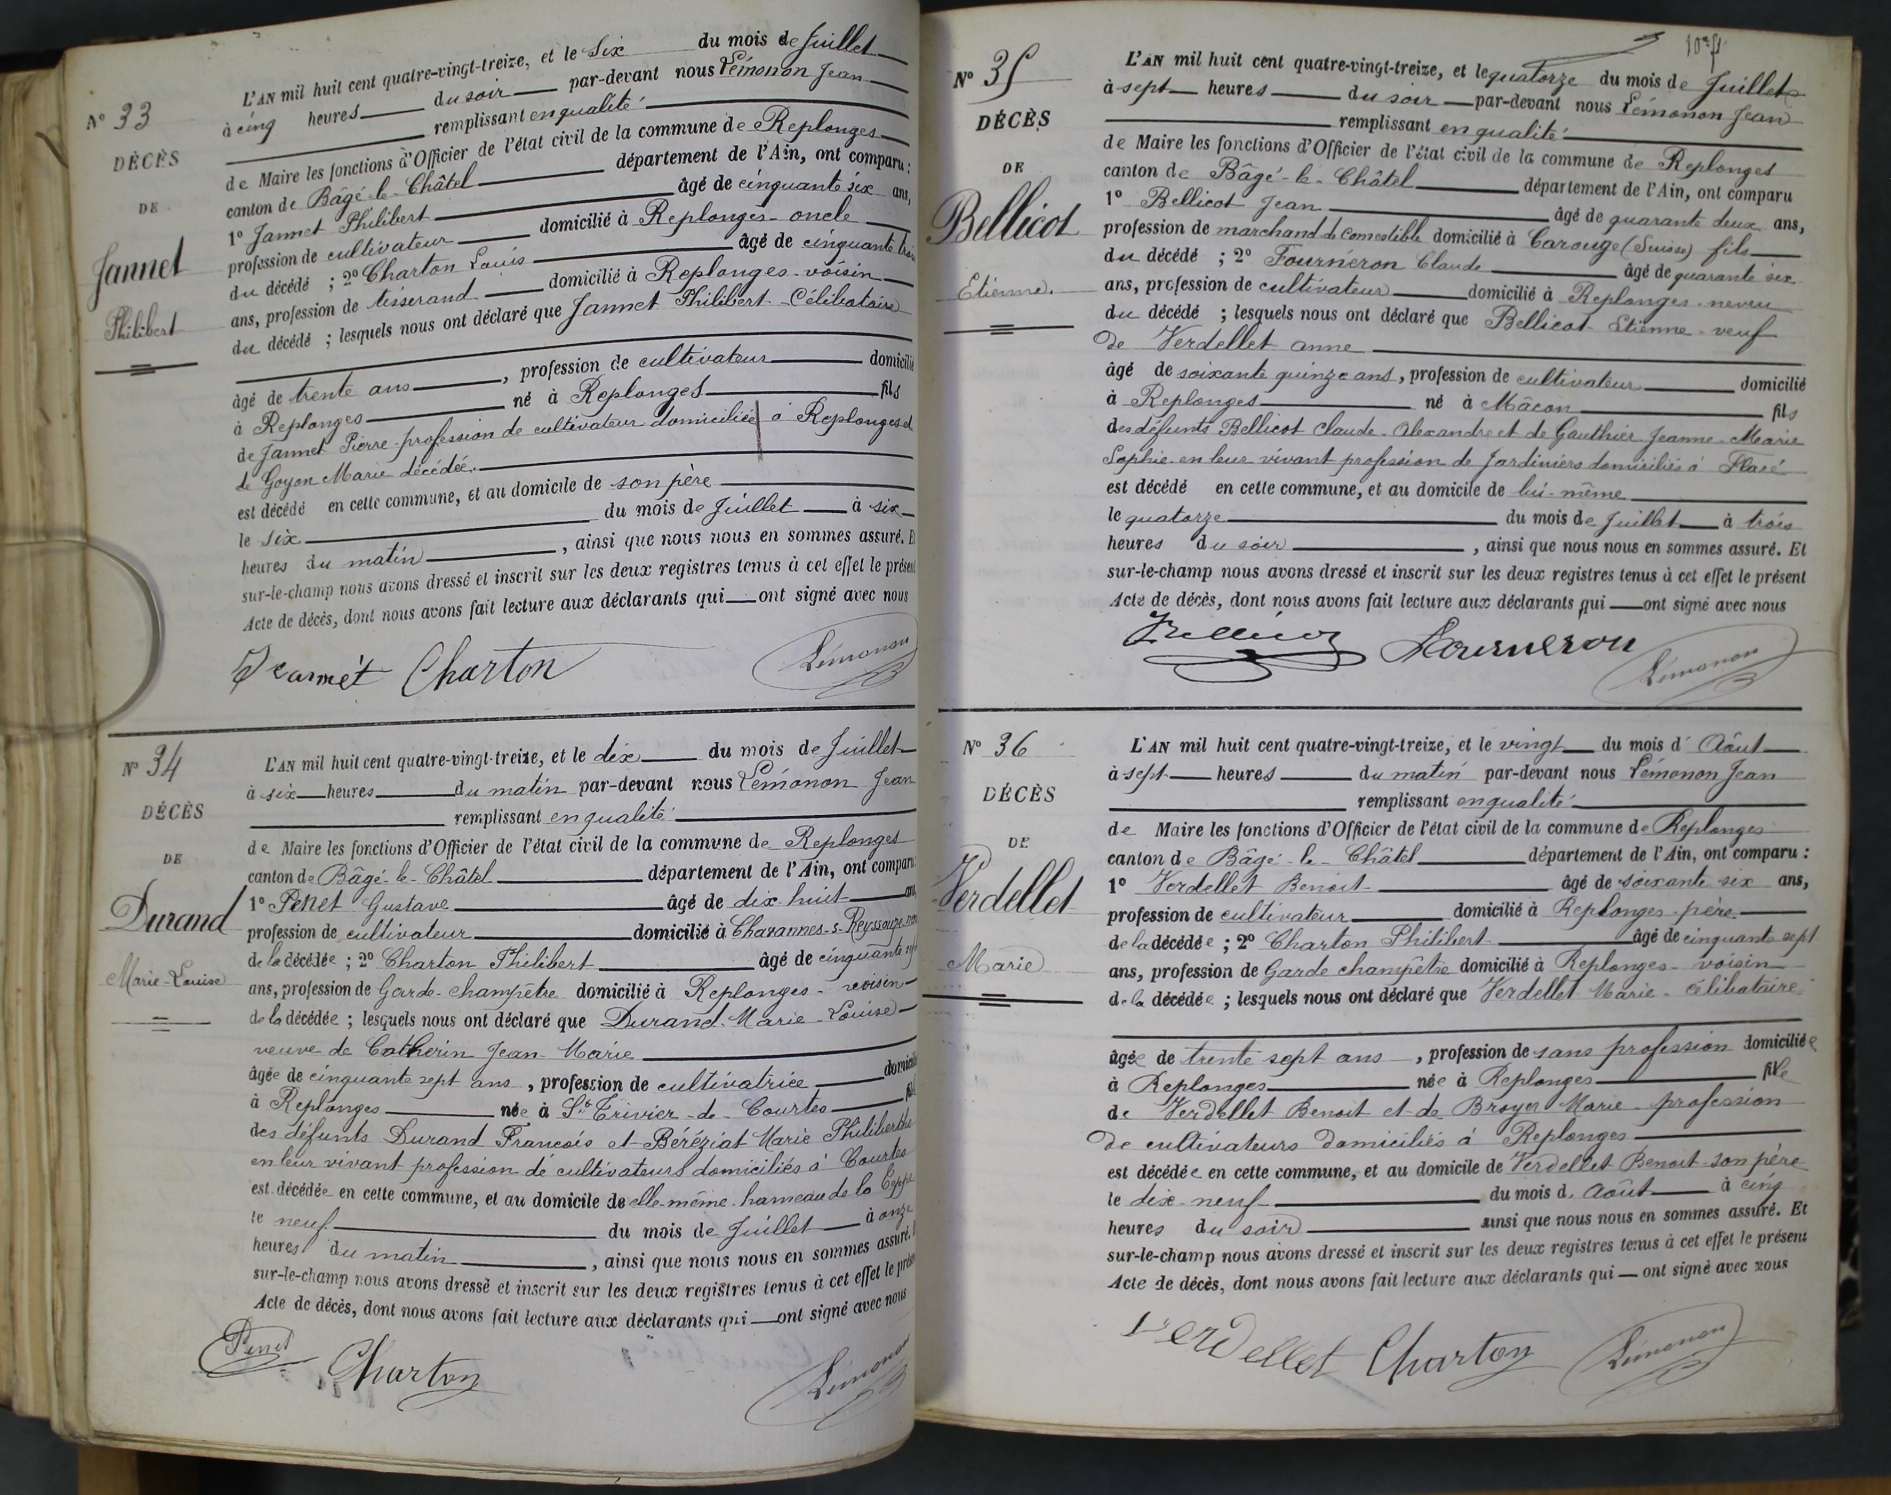 N° 33
DÉCÈS
DE
Jannet
Philibert
L'AN mil huit cent quatre-vingt-treize, et le six du mois de Juillet
à cinq heures du soir par-devant nous Lémonon Jean
remplissant en qualité
de Maire les fonctions d'Officier de l'état civil de la commune de Replonges
canton de Bâgé-le-Châtel département de l'Ain, ont comparu :
1° Jannet Philibert âgé de cinquante six ans,
profession de cultivateur domicilié à Replonges - oncle
du décédé ; 2° Charton Louis âgé de cinquante trois
ans, profession de tisserand domicilié à Replonges - voisin
du décédé ; lesquels nous ont déclaré que Jannet Philibert - Célibataire
âgé de trente ans, profession de cultivateur domicilié
à Replonges né à Replonges fils
de Jannet Pierre - profession de cultivateur domicilié à Replonges et
de Goyon Marie décédée
est décédé en cette commune, et au domicile de son père
le six du mois de Juillet à six
heures du matin, ainsi que nous nous en sommes assuré. Et
sur-le-champ nous avons dressé et inscrit sur les deux registres tenus à cet effet le présent
Acte de décès, dont nous avons fait lecture aux déclarants qui ont signé avec nous
Jeannet Charton Lémonon
N° 34
DÉCÈS
DE
Durand
Marie-Louise
L'AN mil huit cent quatre-vingt-treize, et le dix du mois de Juillet
à six heures du matin par-devant nous Lémonon Jean
remplissant en qualité
de Maire les fonctions d'Officier de l'état civil de la commune de Replonges
canton de Bâgé-le-Châtel département de l'Ain, ont comparu :
1° Penet Gustave âgé de dix huit ans,
profession de cultivateur domicilié à Chavannes-s-Reyssouze
de la décédée ; 2° Charton Philibert âgé de cinquante sept
ans, profession de Garde-champêtre domicilié à Replonges - voisin
de la décédée ; lesquels nous ont déclaré que Durand Marie-Louise
veuve de Catherin Jean-Marie
âgée de cinquante sept ans, profession de cultivatrice domiciliée
à Replonges née à St Trivier-de-Courtes fille
des défunts Durand François et Béréziat Marie Philiberthe
en leur vivant profession de cultivateurs domiciliés à Courtes
est décédée en cette commune, et au domicile de elle-même hameau de la
le neuf du mois de Juillet à onze
heures du matin, ainsi que nous nous en sommes assuré. Et
sur-le-champ nous avons dressé et inscrit sur les deux registres tenus à cet effet le présent
Acte de décès, dont nous avons fait lecture aux déclarants qui ont signé avec nous
Penet Charton Lémonon
N° 35
DÉCÈS
DE
Bellicot
Etienne.
L'AN mil huit cent quatre-vingt-treize, et le quatorze du mois de Juillet
à sept heures du soir par-devant nous Lémonon Jean
remplissant en qualité
de Maire les fonctions d'Officier de l'état civil de la commune de Replonges
canton de Bâgé-le-Châtel département de l'Ain, ont comparu
1° Bellicot Jean âgé de quarante deux ans,
profession de marchand de comestible domicilié à Carouge (Suisse) fils
du décédé ; 2° Fourneron Claude âgé de quarante six
ans, profession de cultivateur domicilié à Replonges - neveu
du décédé ; lesquels nous ont déclaré que Bellicot Etienne - veuf
de Verdellet anne
âgé de soixante quinze ans, profession de cultivateur domicilié
à Replonges né à Mâcon fils
des défunts Bellicot Claude-Alexandre et de Gauthier Jeanne-Marie
Sophie - en leur vivant profession de Jardiniers domiciliés à Flacé
est décédé en cette commune, et au domicile de lui-même
le quatorze du mois de Juillet à trois
heures du soir, ainsi que nous nous en sommes assuré. Et
sur-le-champ nous avons dressé et inscrit sur les deux registres tenus à cet effet le présent
Acte de décès, dont nous avons fait lecture aux déclarants qui ont signé avec nous
Bellicot Fourneron Lémonon
N° 36
DÉCÈS
DE
Verdellet
Marie
L'AN mil huit cent quatre-vingt-treize, et le vingt du mois d'Août
à sept heures du matin par-devant nous Lémonon Jean
remplissant en qualité
de Maire les fonctions d'Officier de l'état civil de la commune de Replonges
canton de Bâgé-le-Châtel département de l'Ain, ont comparu :
1° Verdellet Benoit âgé de soixante six ans,
profession de cultivateur domicilié à Replonges - père
de la décédée ; 2° Charton Philibert âgé de cinquante sept
ans, profession de Garde champêtre domicilié à Replonges - voisin
de la décédée ; lesquels nous ont déclaré que Verdellet Marie - célibataire
âgée de trente sept ans, profession de sans profession domiciliée
à Replonges née à Replonges fille
de Verdellet Benoit et de Broyer Marie - profession
de cultivateurs domiciliés à Replonges
est décédée en cette commune, et au domicile de Verdellet Benoit son père
le dix-neuf du mois d'Août à cinq
heures du soir ainsi que nous nous en sommes assuré. Et
sur-le-champ nous avons dressé et inscrit sur les deux registres tenus à cet effet le présent
Acte de décès, dont nous avons fait lecture aux déclarants qui ont signé avec nous
Verdellet Charton Lémonon